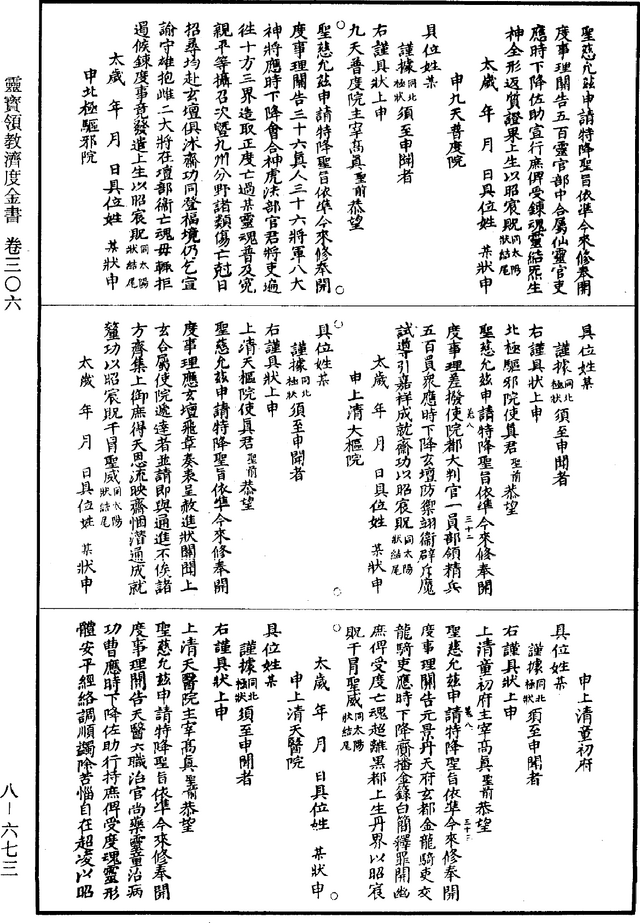 聖慈允茲申請特降聖旨依準今來修奉開
度事理關告五百靈官部中合屬仙靈官吏
應時下降佐助宣行庶俾受鍊魂靈結炁生
神全形返質證果上生以昭宸貺同太陽狀結尾
太歲 年 月 日具位姓 某狀申
申九天普度院
具位姓某
謹據同北極狀須至申聞者
右謹具狀上申
九天普度院主宰高真聖前恭望
聖慈允茲申請特降聖旨依準今來修奉開
度事理關告三十六真人三十六將軍八大
神將應時下降會合神虎法部官君將吏遍
往十方三界造取正度亡過某靈魂普及冤
親平等攝召次暨九州分野諸類傷亡尅日
招尋均赴玄壇俱沐齋功同登福境仍乞宣
諭守雄抱雌二大將在壇部衛亡魂毋輒拒
遏候鍊度事竟發遣上生以昭宸貺同太陽狀結尾
太歲 年 月 日具位姓 某狀申
申北極驅邪院
具位姓某
謹據同北極狀須至申聞者
右謹具狀上申
北極驅邪院使真君聖前恭望
聖慈允茲申請特降聖旨依準今來修奉開
度事理差撥使院都大判官一員部領精兵
五百員衆應時下降玄壇防禦翊衛辟斥魔
試導引嘉祥成就齋功以昭宸貺同太陽狀結尾
太歲 年 月 日具位姓 某狀申
申上清大樞院
具位姓某
謹據同北極狀須至申聞者
右謹具狀上申
上清天樞院使真君聖前恭望
聖慈允茲申請特降聖旨依準今來修奉開
度事理應玄壇飛章奏表呈赦進狀關聞上
玄合屬使院遞達者並請即與通進不俟諸
方齊集上御庶得天恩流映齋悃潛通成就
釐功以昭宸貺干冒聖威同太陽狀結尾
太歲 年 月 日具位姓 某狀申
申上清童初府
具位姓某
謹據同北極狀須至申聞者
右謹具狀上申
上清童初府主宰高真聖前恭望
聖慈允茲申請特降聖旨依準今來修奉開
度事理關告元景丹天府玄都金龍騎吏交
龍騎吏應時下降齎擕金籙白簡釋罪開幽
庶俾受度亡魂超離黑都上生丹界以昭宸
貺干冒聖威同太陽狀結尾
太歲 年 月 日具位姓 某狀申
申上清天醫院
具位姓某
謹據同北極狀須至申聞者
右謹具狀上申
上清天醫院主宰高真聖前恭望
聖慈允茲申請特降聖旨依準今來修奉開
度事理關告天醫六職治官尚藥靈童治病
功曹應時下降佐助行持庶俾受度魂靈形
體安平經絡調順蠲除苦惱自在超凌以昭
靈寶領教濟度金書 卷三〇六
八—六七三